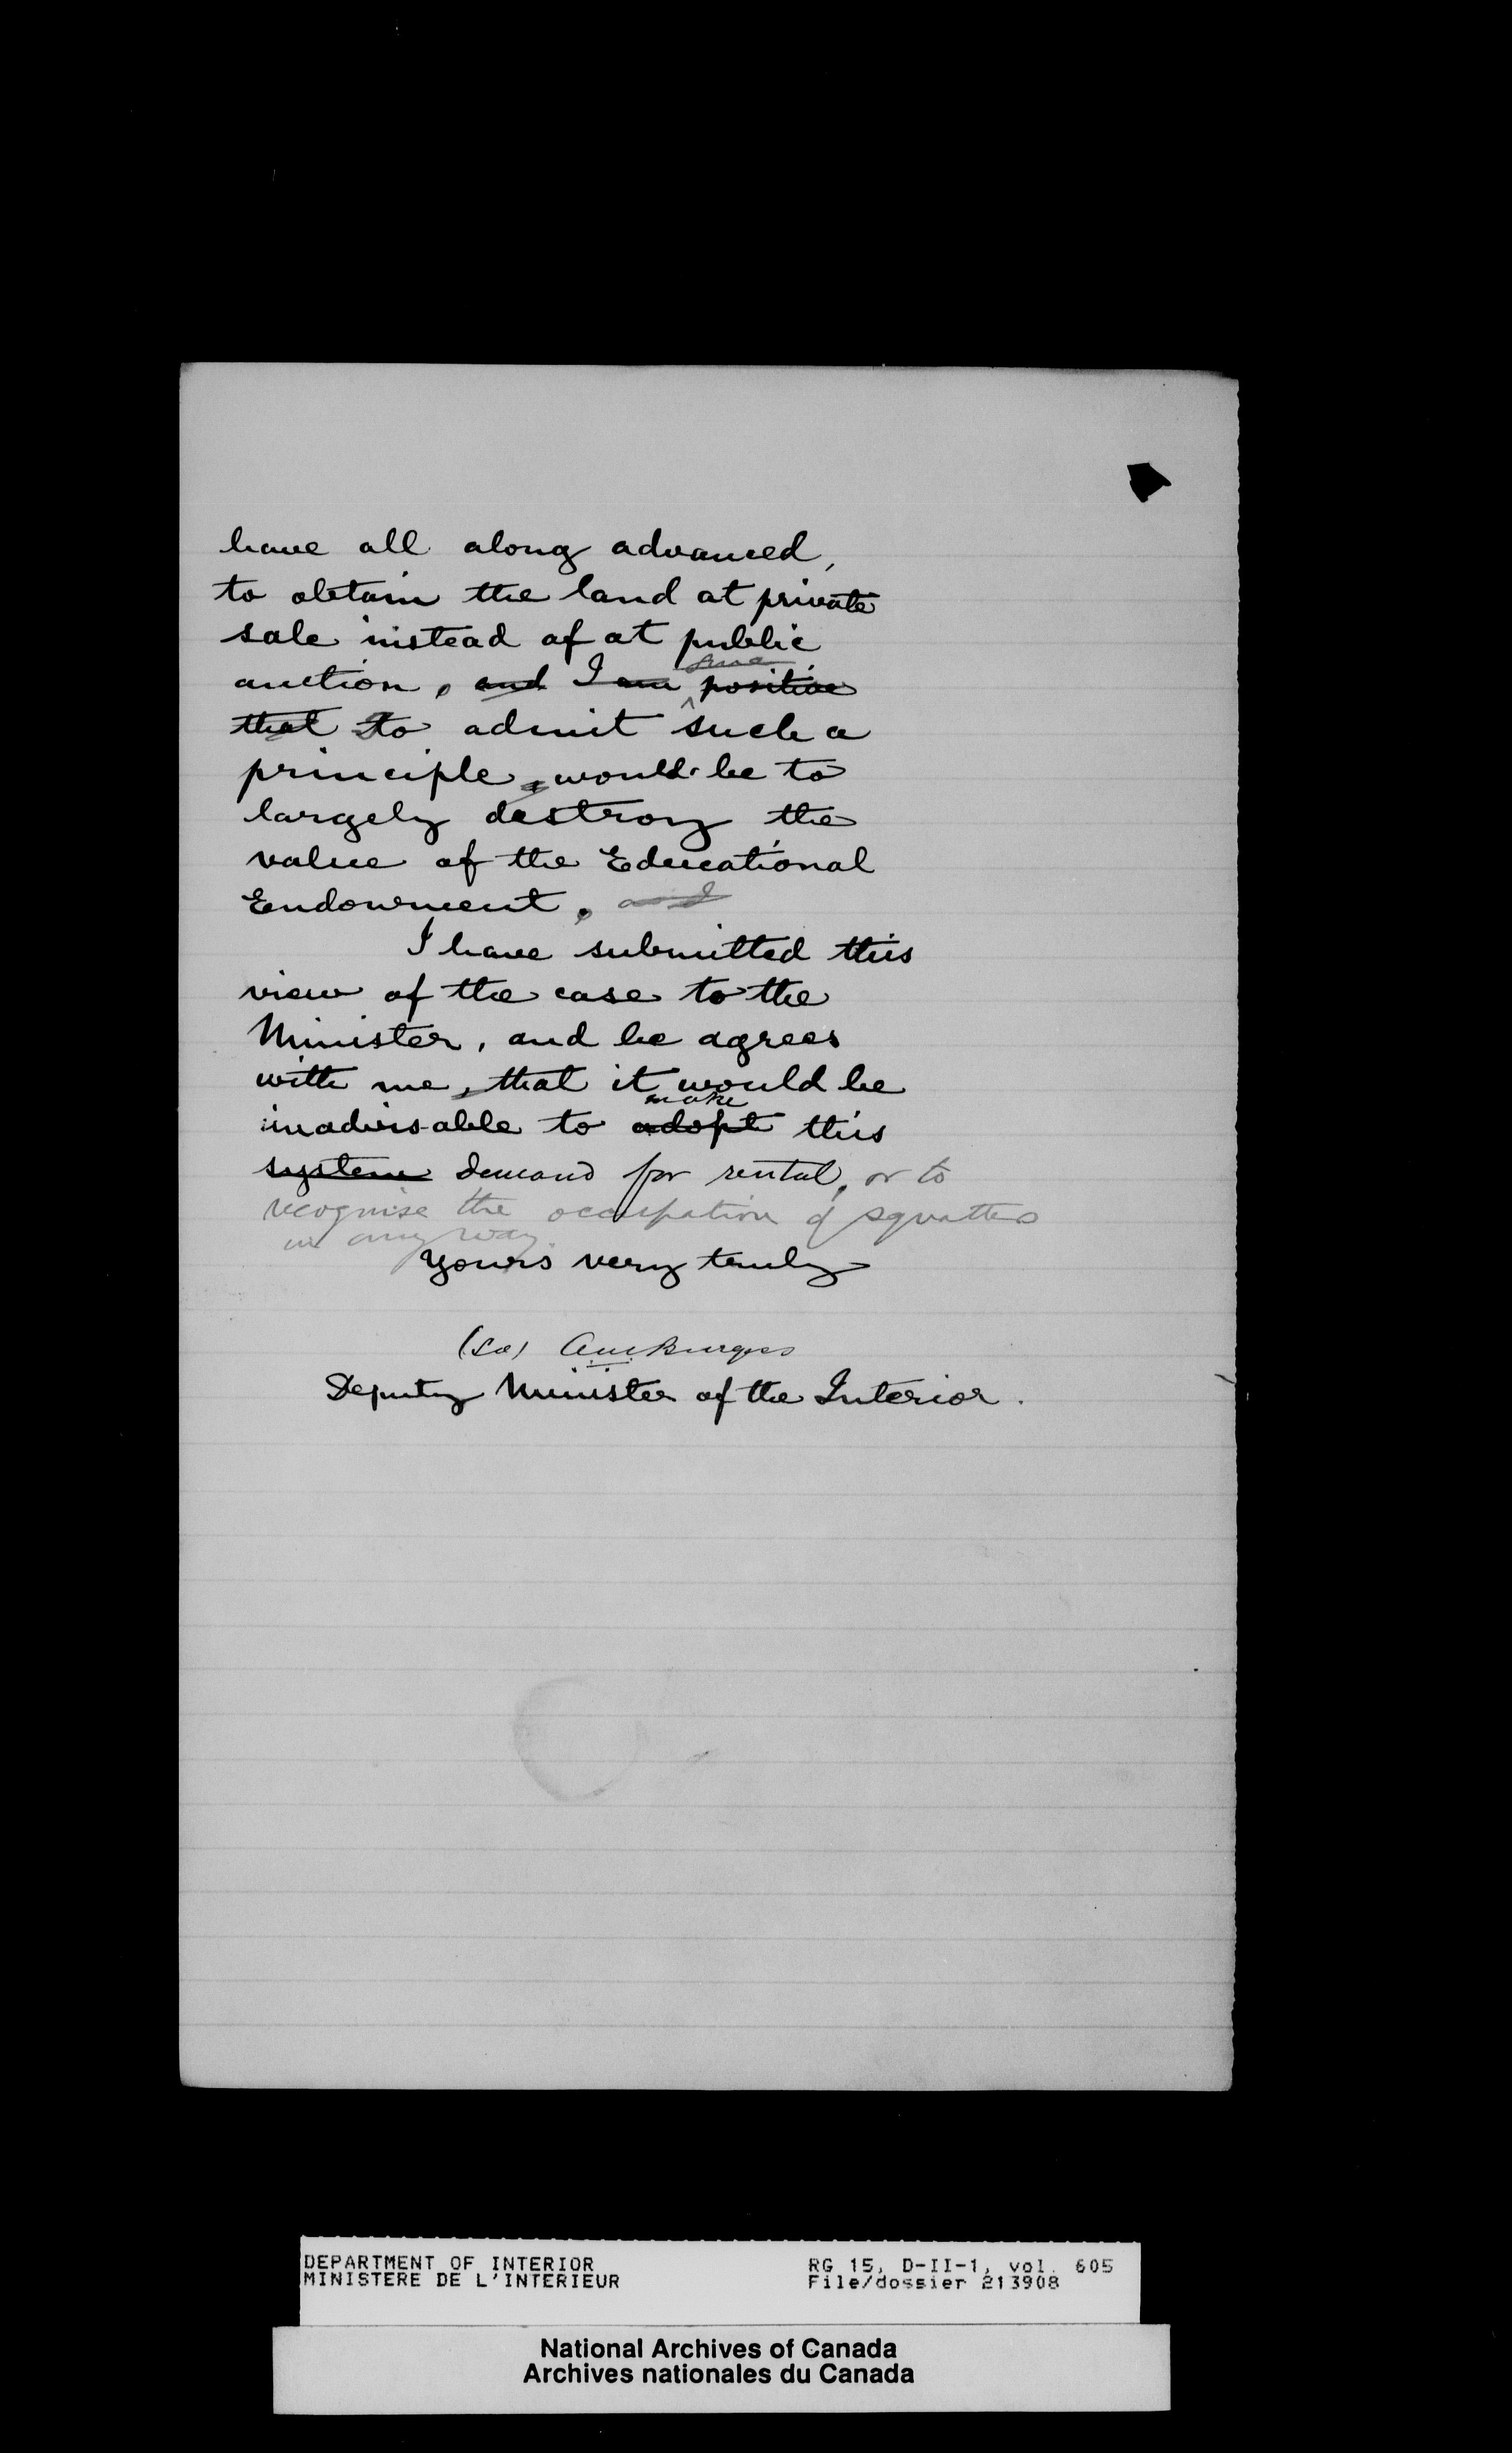 have all along advanced,
to obtain the land at private
sale instead of at public
auction, and I am positive
that To admit such a
principle, would be to
largely destroy the
value of the Educational
Endowment. and
I have submitted this
view of the case to the
Minister, and he agrees
with me, that it would be
make
inadvisable to adopt this
system demand for rental, or to
recognise the occupation of squatters
in any way.
Yours very truly
(Sd) A.M. Burgess
Deputy Minister of the Interior.
DEPARTMENT OF INTERIOR
MINISTERE DE L'INTERIEUR
RG 15, D-II-1, vol. 605
File/dossier 213908
National Archives of Canada
Archives nationales du Canada